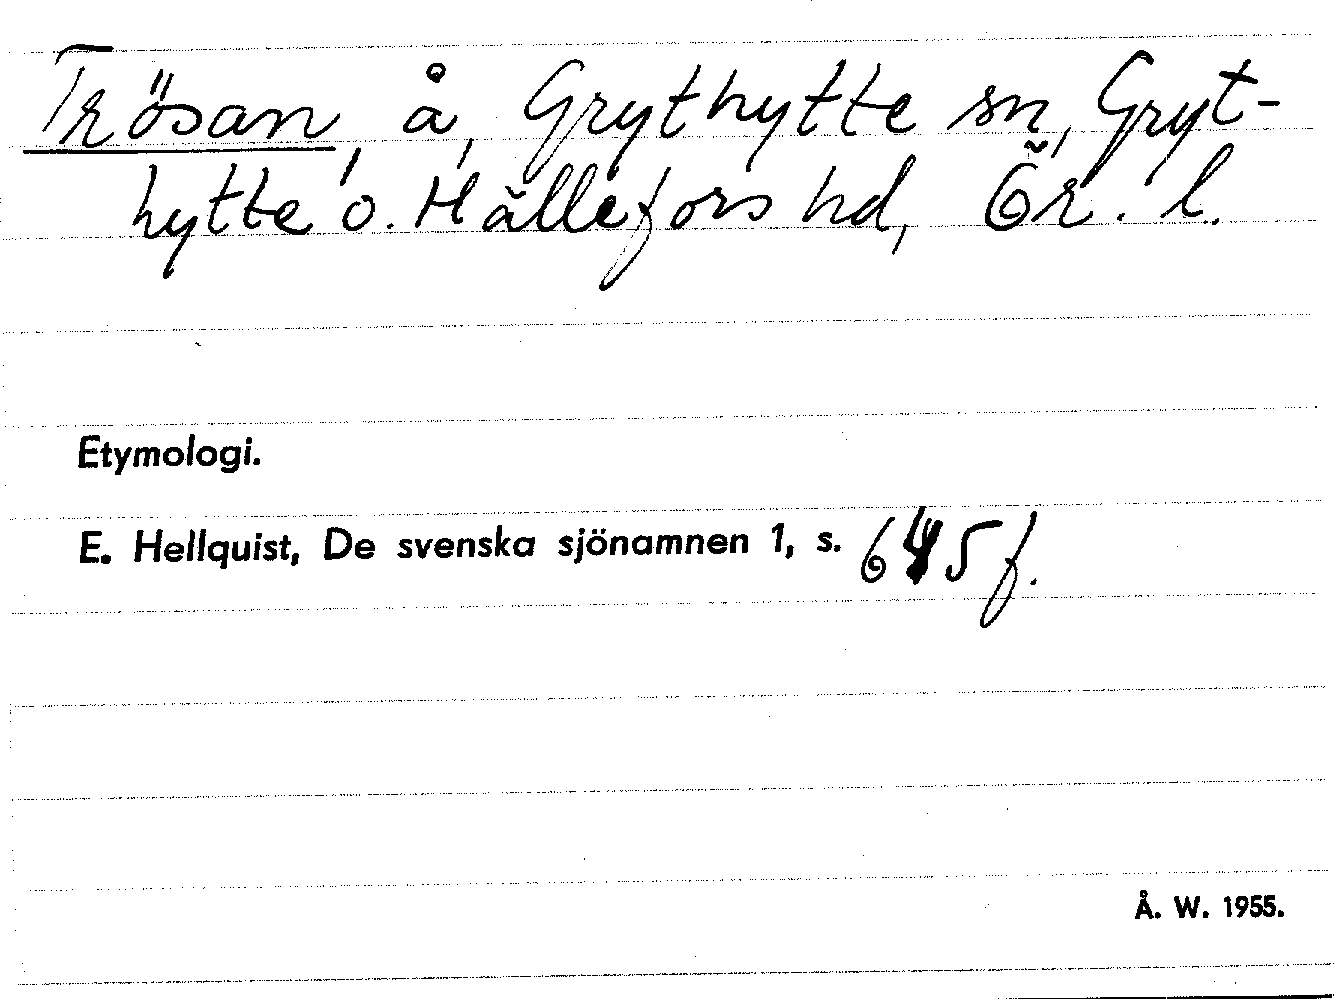 Trösan, å, Grythytte sn, Gryt-
hytte o. Hällefors hd, Ör. l.
Etymologi.
E. Hellquist, De svenska sjönamnen 1, s. 645 f.
Å. W. 1955.